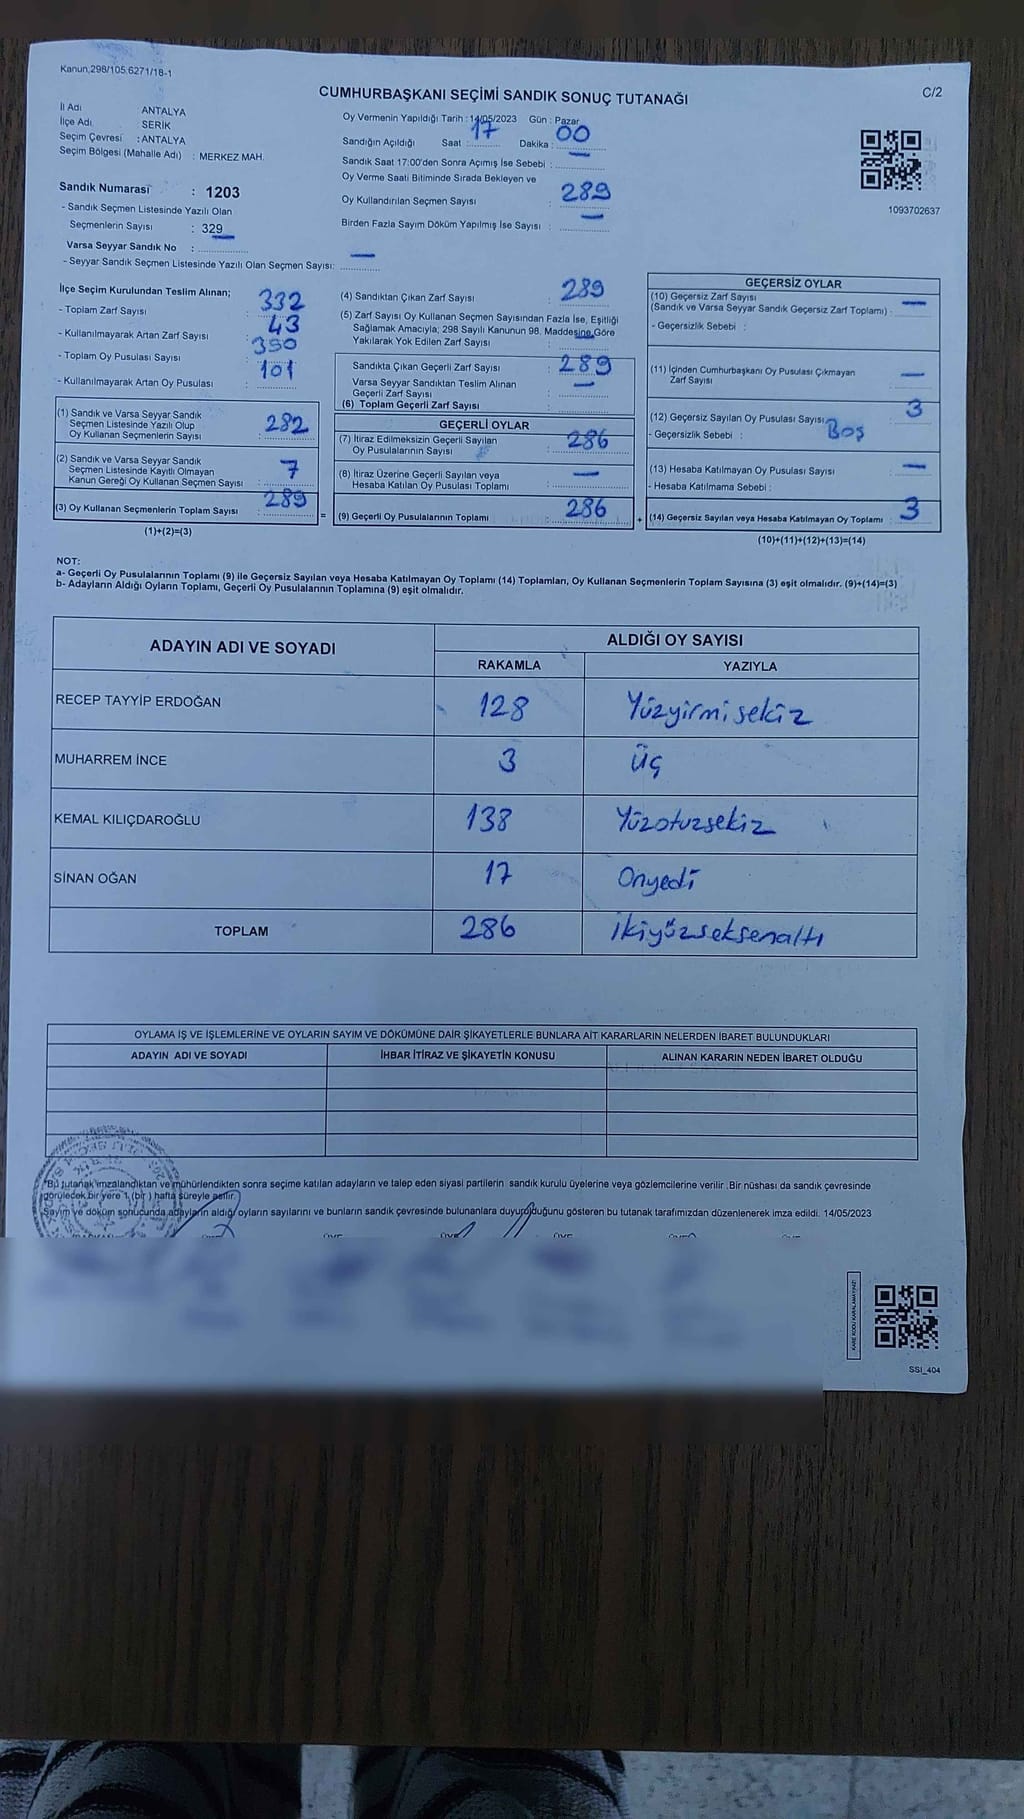 Kanun,298/105.6271/18-1
CUMHURBAŞKANI SEÇİMİ SANDIK SONUÇ TUTANAĞI
C/2
İl Adı ANTALYA
İlçe Adı SERİK
Seçim Çevresi : ANTALYA
Seçim Bölgesi (Mahalle Adı) : MERKEZ MAH.
Sandık Numarası : 1203
- Sandık Seçmen Listesinde Yazılı Olan
Seçmenlerin Sayısı : 329
Varsa Seyyar Sandık No :
- Seyyar Sandık Seçmen Listesinde Yazılı Olan Seçmen Sayısı: —
Oy Vermenin Yapıldığı Tarih : 14/05/2023 Gün : Pazar
Sandığın Açıldığı Saat : 17 Dakika : 00
Sandık Saat 17:00'den Sonra Açımış İse Sebebi : —
Oy Verme Saati Bitiminde Sırada Bekleyen ve
Oy Kullandırılan Seçmen Sayısı : 289
Birden Fazla Sayım Döküm Yapılmış İse Sayısı : —
1093702637
İlçe Seçim Kurulundan Teslim Alınan;
- Toplam Zarf Sayısı : 332
- Kullanılmayarak Artan Zarf Sayısı : 43
- Toplam Oy Pusulası Sayısı : 390
- Kullanılmayarak Artan Oy Pusulası : 101
(1) Sandık ve Varsa Seyyar Sandık
Seçmen Listesinde Yazılı Olup
Oy Kullanan Seçmenlerin Sayısı : 282
(2) Sandık ve Varsa Seyyar Sandık
Seçmen Listesinde Kayıtlı Olmayan
Kanun Gereği Oy Kullanan Seçmen Sayısı : 7
(3) Oy Kullanan Seçmenlerin Toplam Sayısı : 289
(1)+(2)=(3)
(4) Sandıktan Çıkan Zarf Sayısı : 289
(5) Zarf Sayısı Oy Kullanan Seçmen Sayısından Fazla İse, Eşitliği
Sağlamak Amacıyla; 298 Sayılı Kanunun 98. Maddesine Göre
Yakılarak Yok Edilen Zarf Sayısı : —
Sandıkta Çıkan Geçerli Zarf Sayısı : 289
Varsa Seyyar Sandıktan Teslim Alınan
Geçerli Zarf Sayısı : —
(6) Toplam Geçerli Zarf Sayısı :
GEÇERLİ OYLAR
(7) İtiraz Edilmeksizin Geçerli Sayılan
Oy Pusulalarının Sayısı : 286
(8) İtiraz Üzerine Geçerli Sayılan veya
Hesaba Katılan Oy Pusulası Toplamı : —
= (9) Geçerli Oy Pusulalarının Toplamı : 286 +
GEÇERSİZ OYLAR
(10) Geçersiz Zarf Sayısı
(Sandık ve Varsa Seyyar Sandık Geçersiz Zarf Toplamı) : —
- Geçersizlik Sebebi :
(11) İçinden Cumhurbaşkanı Oy Pusulası Çıkmayan
Zarf Sayısı —
(12) Geçersiz Sayılan Oy Pusulası Sayısı : 3
- Geçersizlik Sebebi : Boş
(13) Hesaba Katılmayan Oy Pusulası Sayısı : —
- Hesaba Katılmama Sebebi :
(14) Geçersiz Sayılan veya Hesaba Katılmayan Oy Toplamı : 3
(10)+(11)+(12)+(13)=(14)
NOT:
a- Geçerli Oy Pusulalarının Toplamı (9) ile Geçersiz Sayılan veya Hesaba Katılmayan Oy Toplamı (14) Toplamları, Oy Kullanan Seçmenlerin Toplam Sayısına (3) eşit olmalıdır. (9)+(14)=(3)
b- Adayların Aldığı Oyların Toplamı, Geçerli Oy Pusulalarının Toplamına (9) eşit olmalıdır.
ADAYIN ADI VE SOYADI ALDIĞI OY SAYISI
RAKAMLA YAZIYLA
RECEP TAYYİP ERDOĞAN 128 Yüzyirmisekiz
MUHARREM İNCE 3 Üç
KEMAL KILIÇDAROĞLU 138 Yüzotuzsekiz
SİNAN OĞAN 17 Onyedi
TOPLAM 286 ikiyüzseksenaltı
OYLAMA İŞ VE İŞLEMLERİNE VE OYLARIN SAYIM VE DÖKÜMÜNE DAİR ŞİKAYETLERLE BUNLARA AİT KARARLARIN NELERDEN İBARET BULUNDUKLARI
ADAYIN ADI VE SOYADI İHBAR İTİRAZ VE ŞİKAYETİN KONUSU ALINAN KARARIN NEDEN İBARET OLDUĞU
"Bu tutanak imzalandıktan ve mühürlendikten sonra seçime katılan adayların ve talep eden siyasi partilerin sandık kurulu üyelerine veya gözlemcilerine verilir. Bir nüshası da sandık çevresinde
görülecek bir yere 1 (bir) hafta süreyle asılır.
Sayım ve döküm sonucunda adayların aldığı oyların sayılarını ve bunların sandık çevresinde bulunanlara duyurulduğunu gösteren bu tutanak tarafımızdan düzenlenerek imza edildi. 14/05/2023
KARE KODU KARALAMAYINIZ!
SSI_404